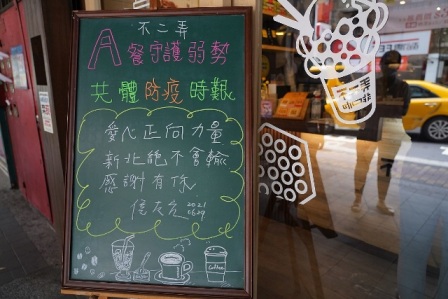 不二弄
A餐守護弱勢
共體防疫時艱
愛心正向力量
新北絕不會輸
感謝有你
侯友宜 2021
Coffee